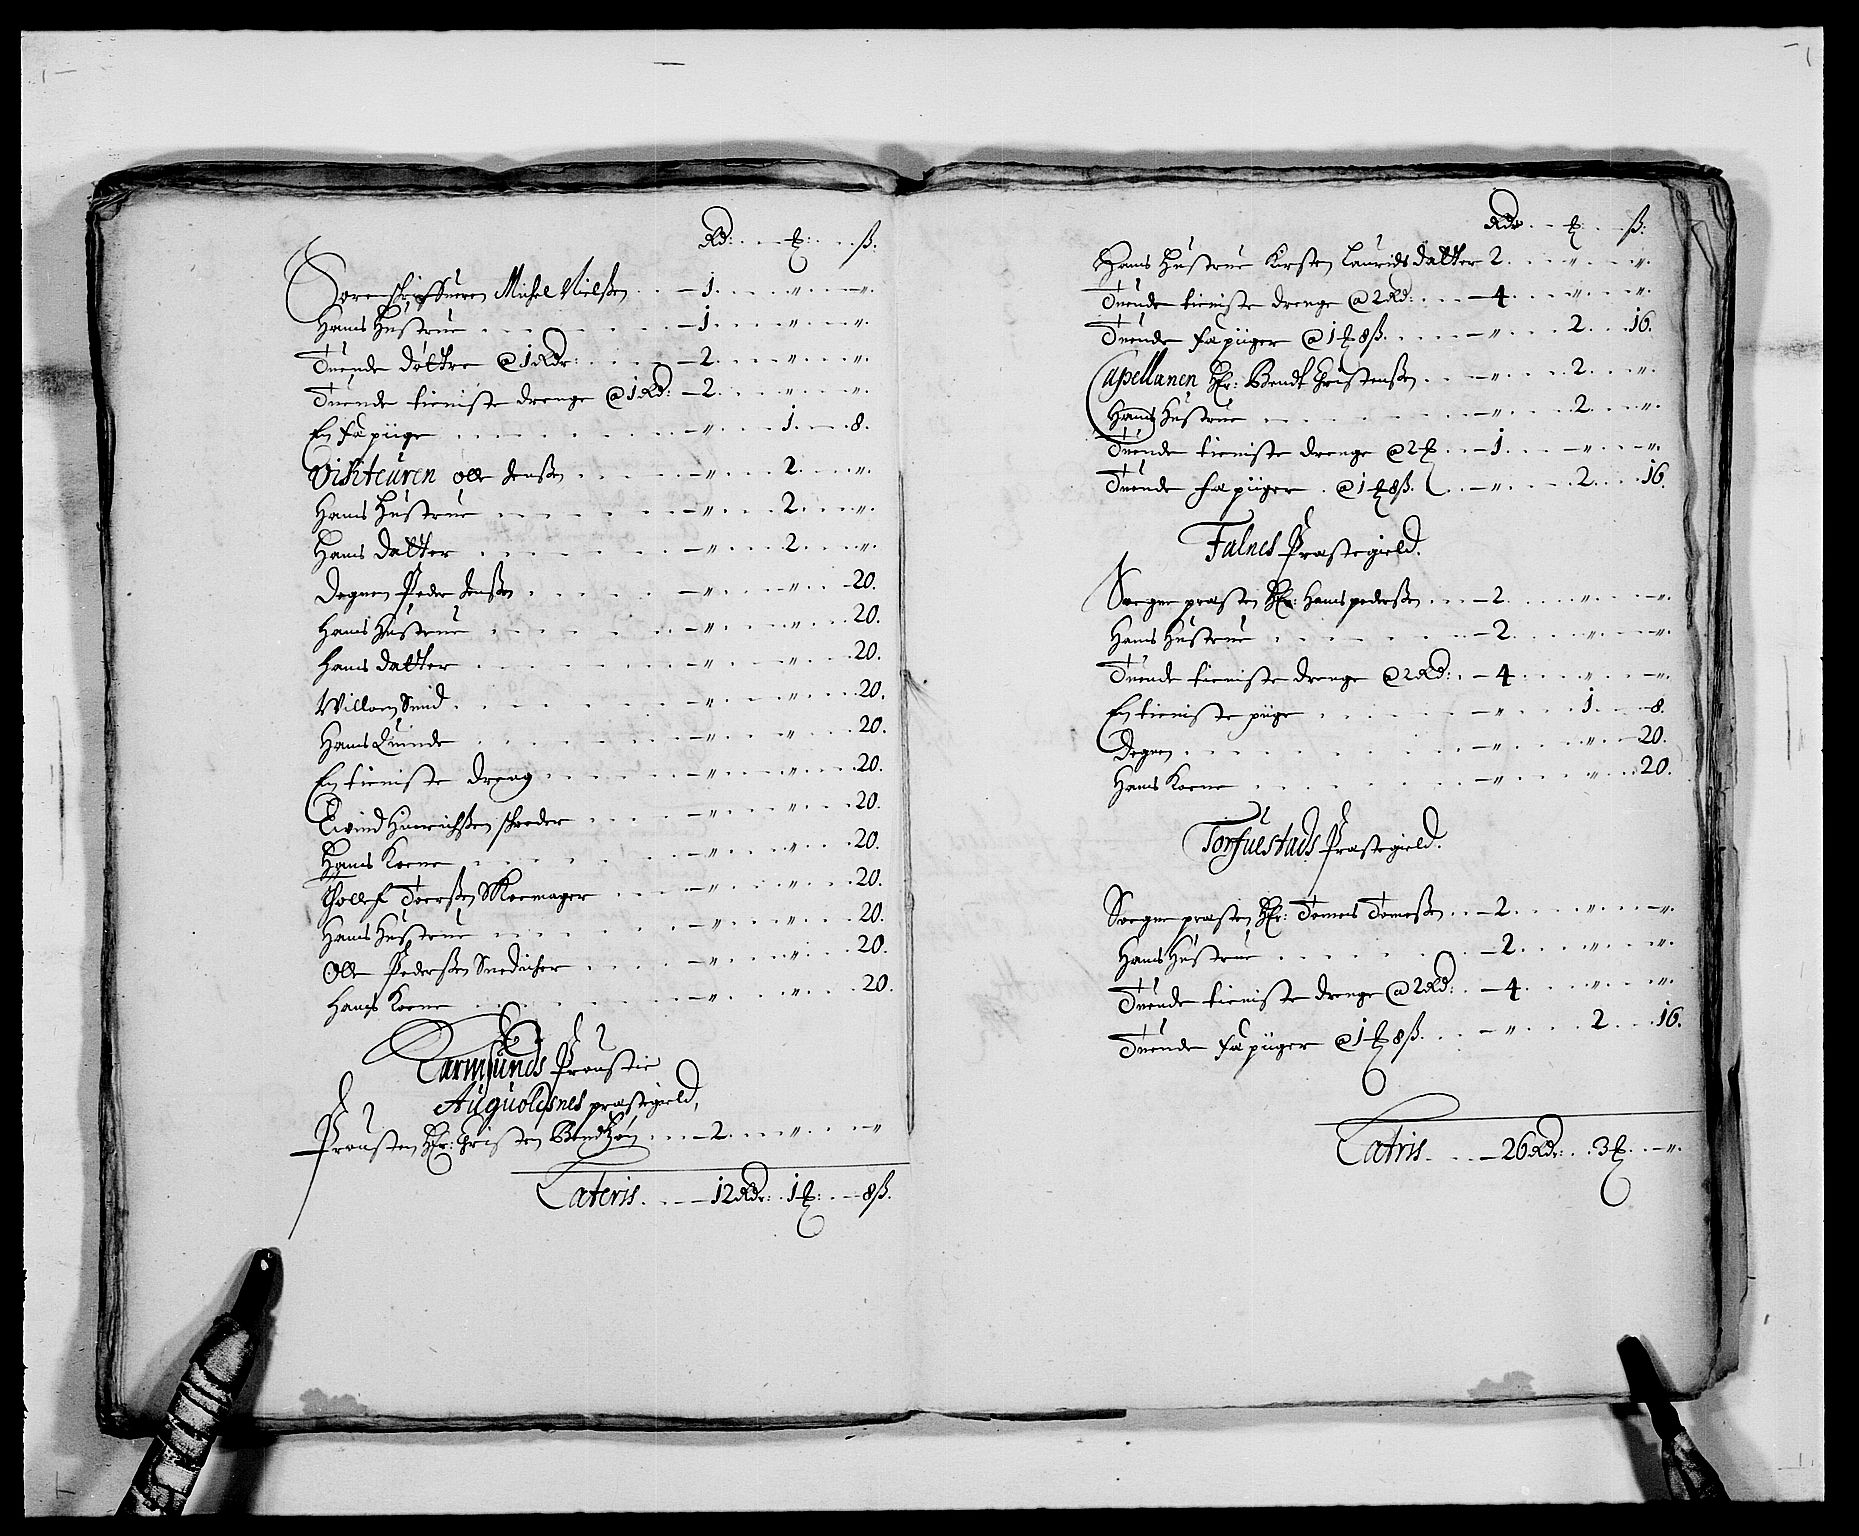 Rd: . . . ℔: . . . ß:
Sorenskrifueren Michel Nielßen . . 1 . . . " . . . "
Hans Hustrue . . . 1 . . . " . . . "
Tuende döttre @ 1 Rdr: . . . 2 . . . " . . . "
Tuende tieniste drenge @ 1 Rd: 2 . . . " . . . "
En fæpiige . . . " . . . 1 . . . 8.
Visiteuren Olle Jenßen . . . " . . . 2 . . . "
Hans Hustrue . . . " . . . 2 . . . "
Hans datter . . . " . . . 2 . . . "
Degnen Peder Jenßen . . . " . . . " . . . 20.
Hans Hustrue . . . " . . . " . . . 20.
Hans datter . . . " . . . " . . . 20.
Willom Smid . . . " . . . " . . . 20.
Hans Quinde . . . " . . . " . . . 20.
En tieniste dreng . . . " . . . " . . . 20.
Eivind Hinrichßen skreder . . . " . . . " . . . 20.
Hans Kone . . . " . . . " . . . 20.
Thollef Toerßen Skoemager . . . " . . . " . . . 20.
Hans Hustrue . . . " . . . " . . . 20.
Olle Pederßen Snedicher . . . " . . . " . . . 20.
Hans Kone . . . " . . . " . . . 20.
CarmsundsProustie
Auguoldsnes præstegield,
Prousten Hr: Christen Bendtzön . . . 2 . . . " . . . "
Lateris . . . 12 Rdr: . 1 ℔: . . 8 ß.
Rdr . . . ℔: . . . ß.
Hans Hustrue Kirsten Laurids datter 2 . . . " . . . "
Tuende tieniste drenge @ 2 Rd: . . . 4 . . . " . . . "
Tuende fæpiiger @ 1 ℔ 8 ß. . . . " . . . 2 . . . 16.
Capellanen Hr: Bendt Christenßen . . . " . . . 2 . . . "
Hans Hustrue . . . " . . . 2 . . . "
Tuende tieniste drenge @ 2 ℔ . . . 1 . . . " . . . "
Tuende fæpiiger . @ 1 ℔ 8 ß. . . . " . . . 2 . . . 16.
Falnes Præstegield.
Sogne præsten Hr: Hans pederßen . . . 2 . . . " . . . "
Hans Hustrue . . . 2 . . . " . . . "
Tuende tieniste drenge @ 2 Rd: . . 4 . . . " . . . "
En tieniste piige . . . " . . . 1 . . . 8.
Degnen . . . " . . . " . . . 20.
Hans Kone . . . " . . . " . . . 20.
Torfuestads Præstegield.
Sogne præsten Hr: Tomes Tomeßen . . . 2 . . . " . . . "
Hans Hustrue . . . 2 . . . " . . . "
Tuende tieniste drenge @ 2 Rd: . . 4 . . . " . . . "
Tuende fæpiiger @ 1 ℔ 8 ß. . . . " . . . 2 . . . 16.
Latris . . . 26 Rdr: . . 3 ℔ . . . "